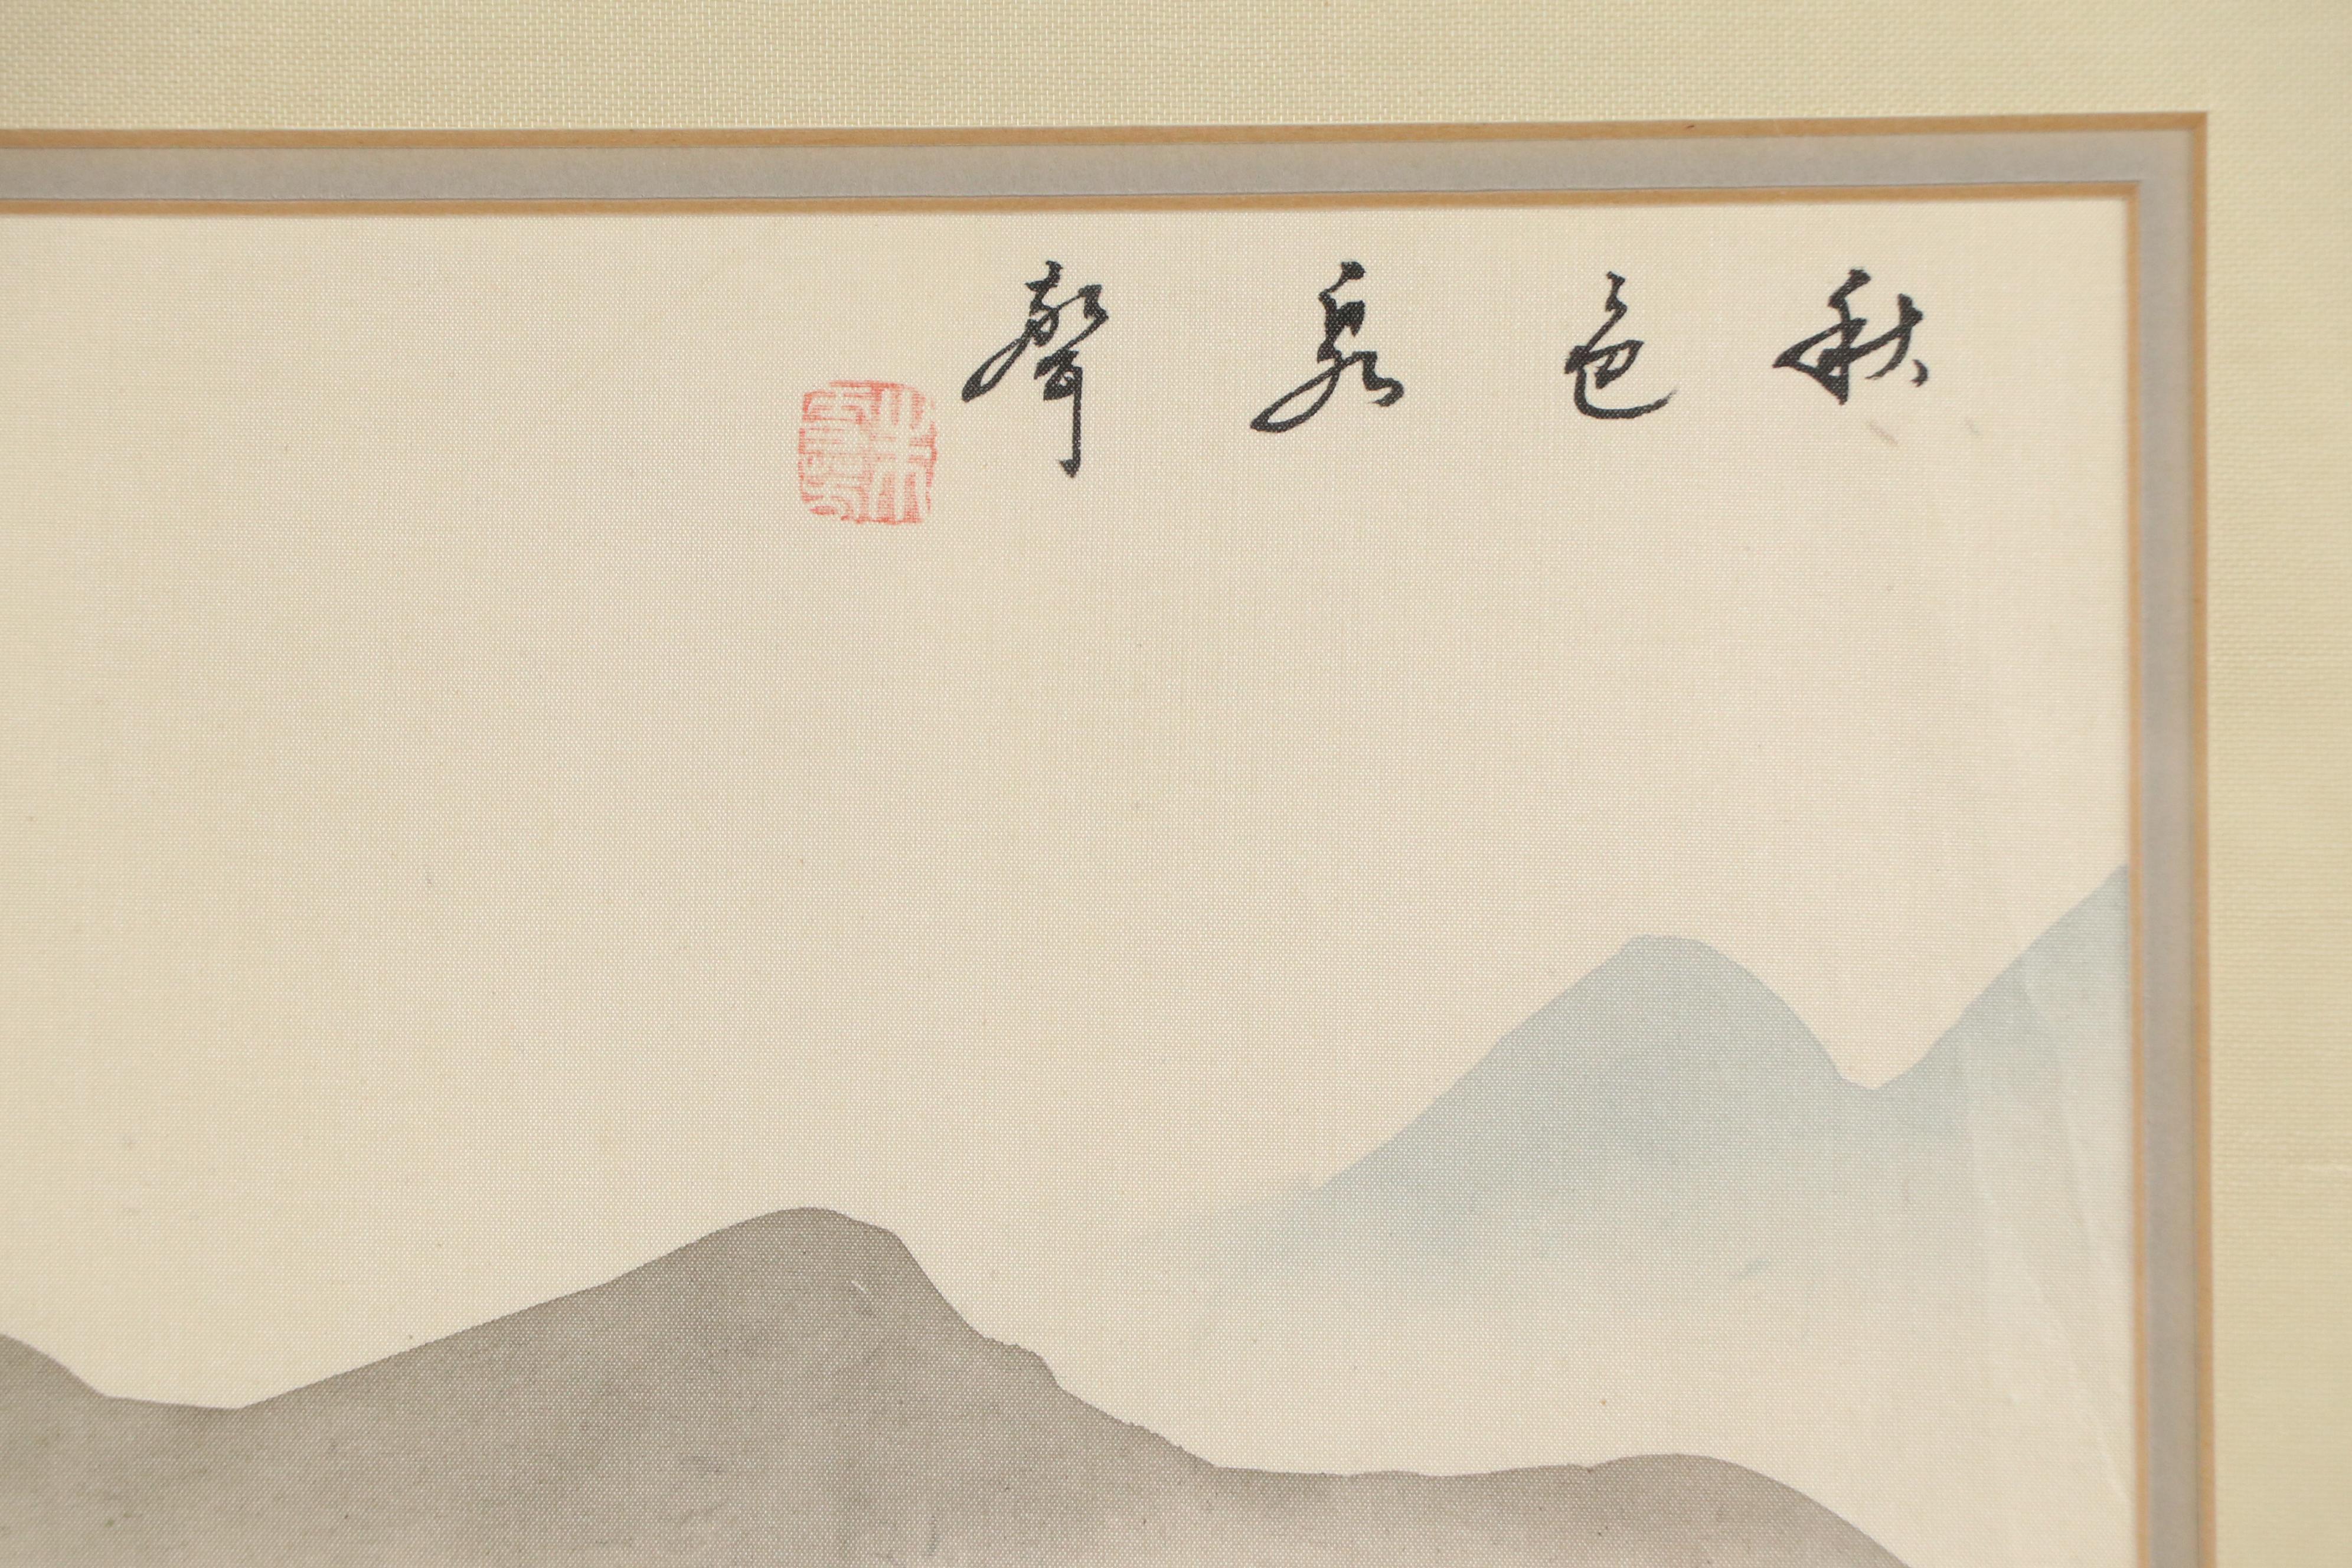 秋色泉聲